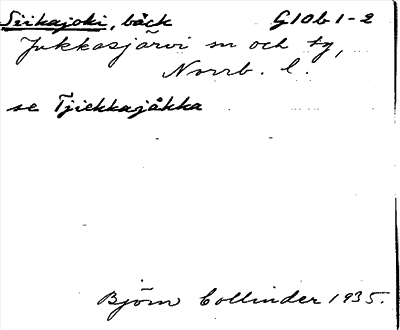 Siikajoki, bäck G10b1-2
Jukkasjärvi sn och tg,
Norrb. l.
se Tjiekkajåkka
Björn Collinder 1935.